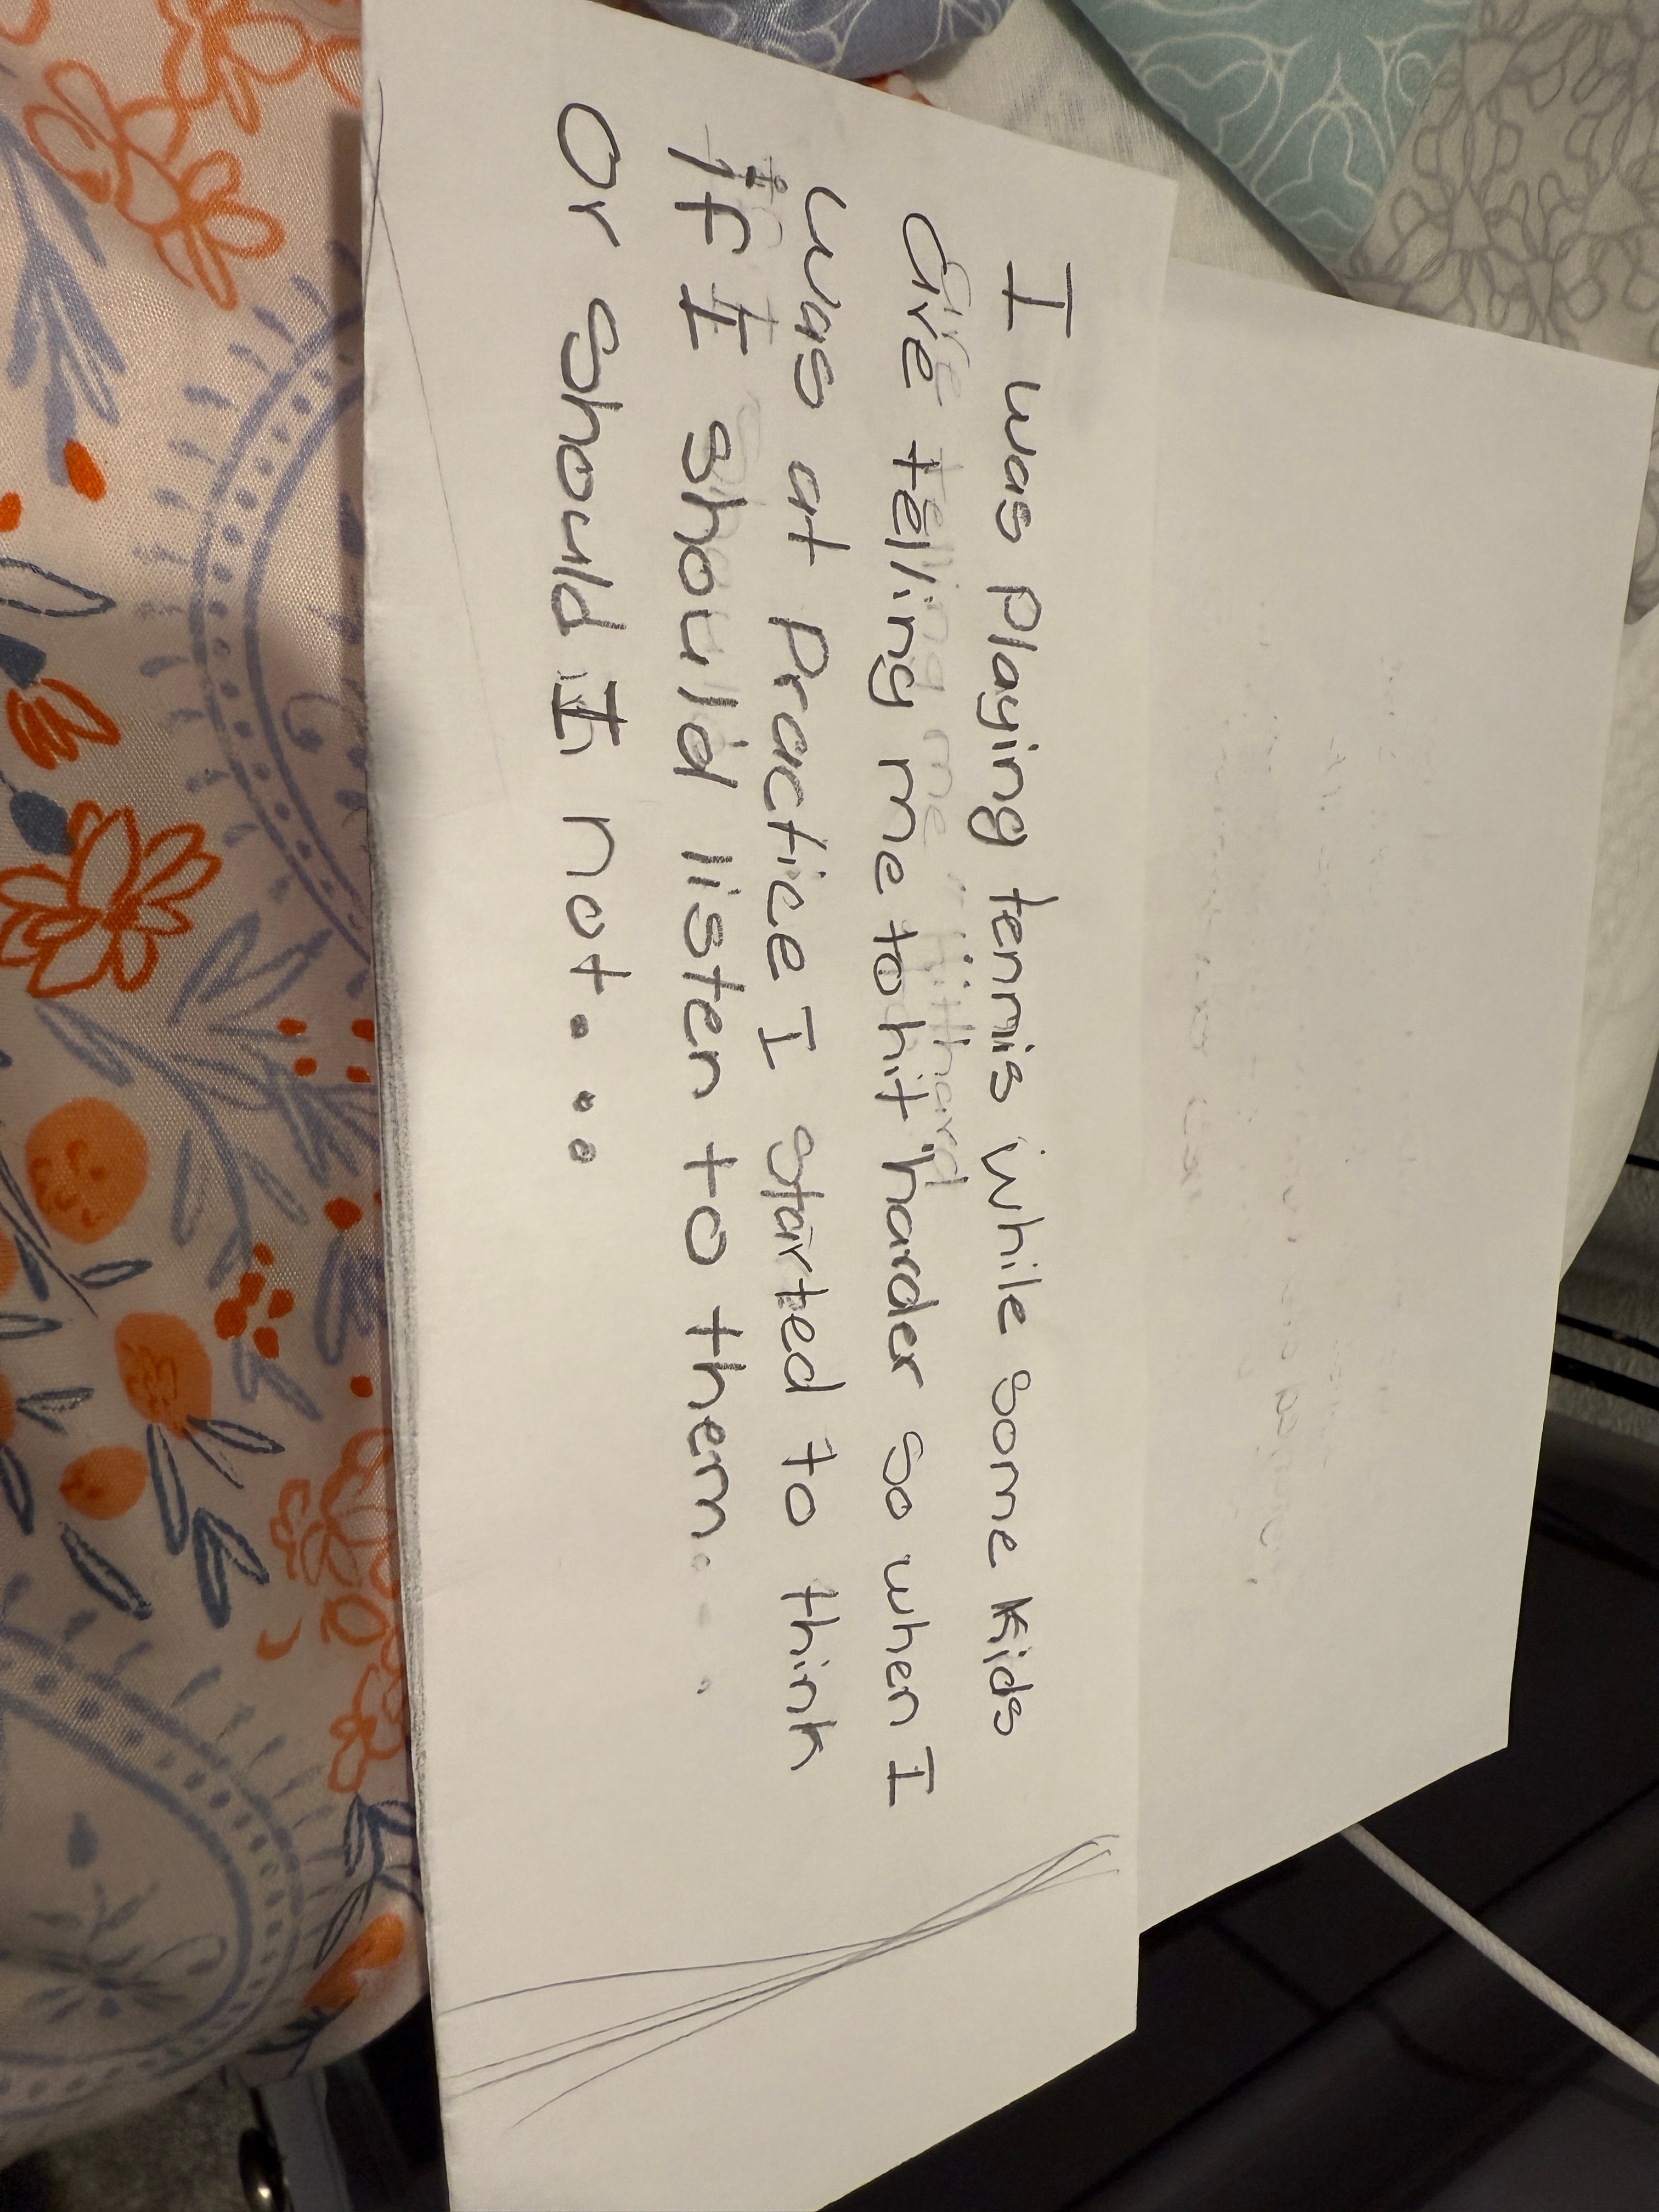 I was playing tennis while some kids
are telling me to hit harder so when I
was at practice I started to think
if I should listen to them...
or should I not...